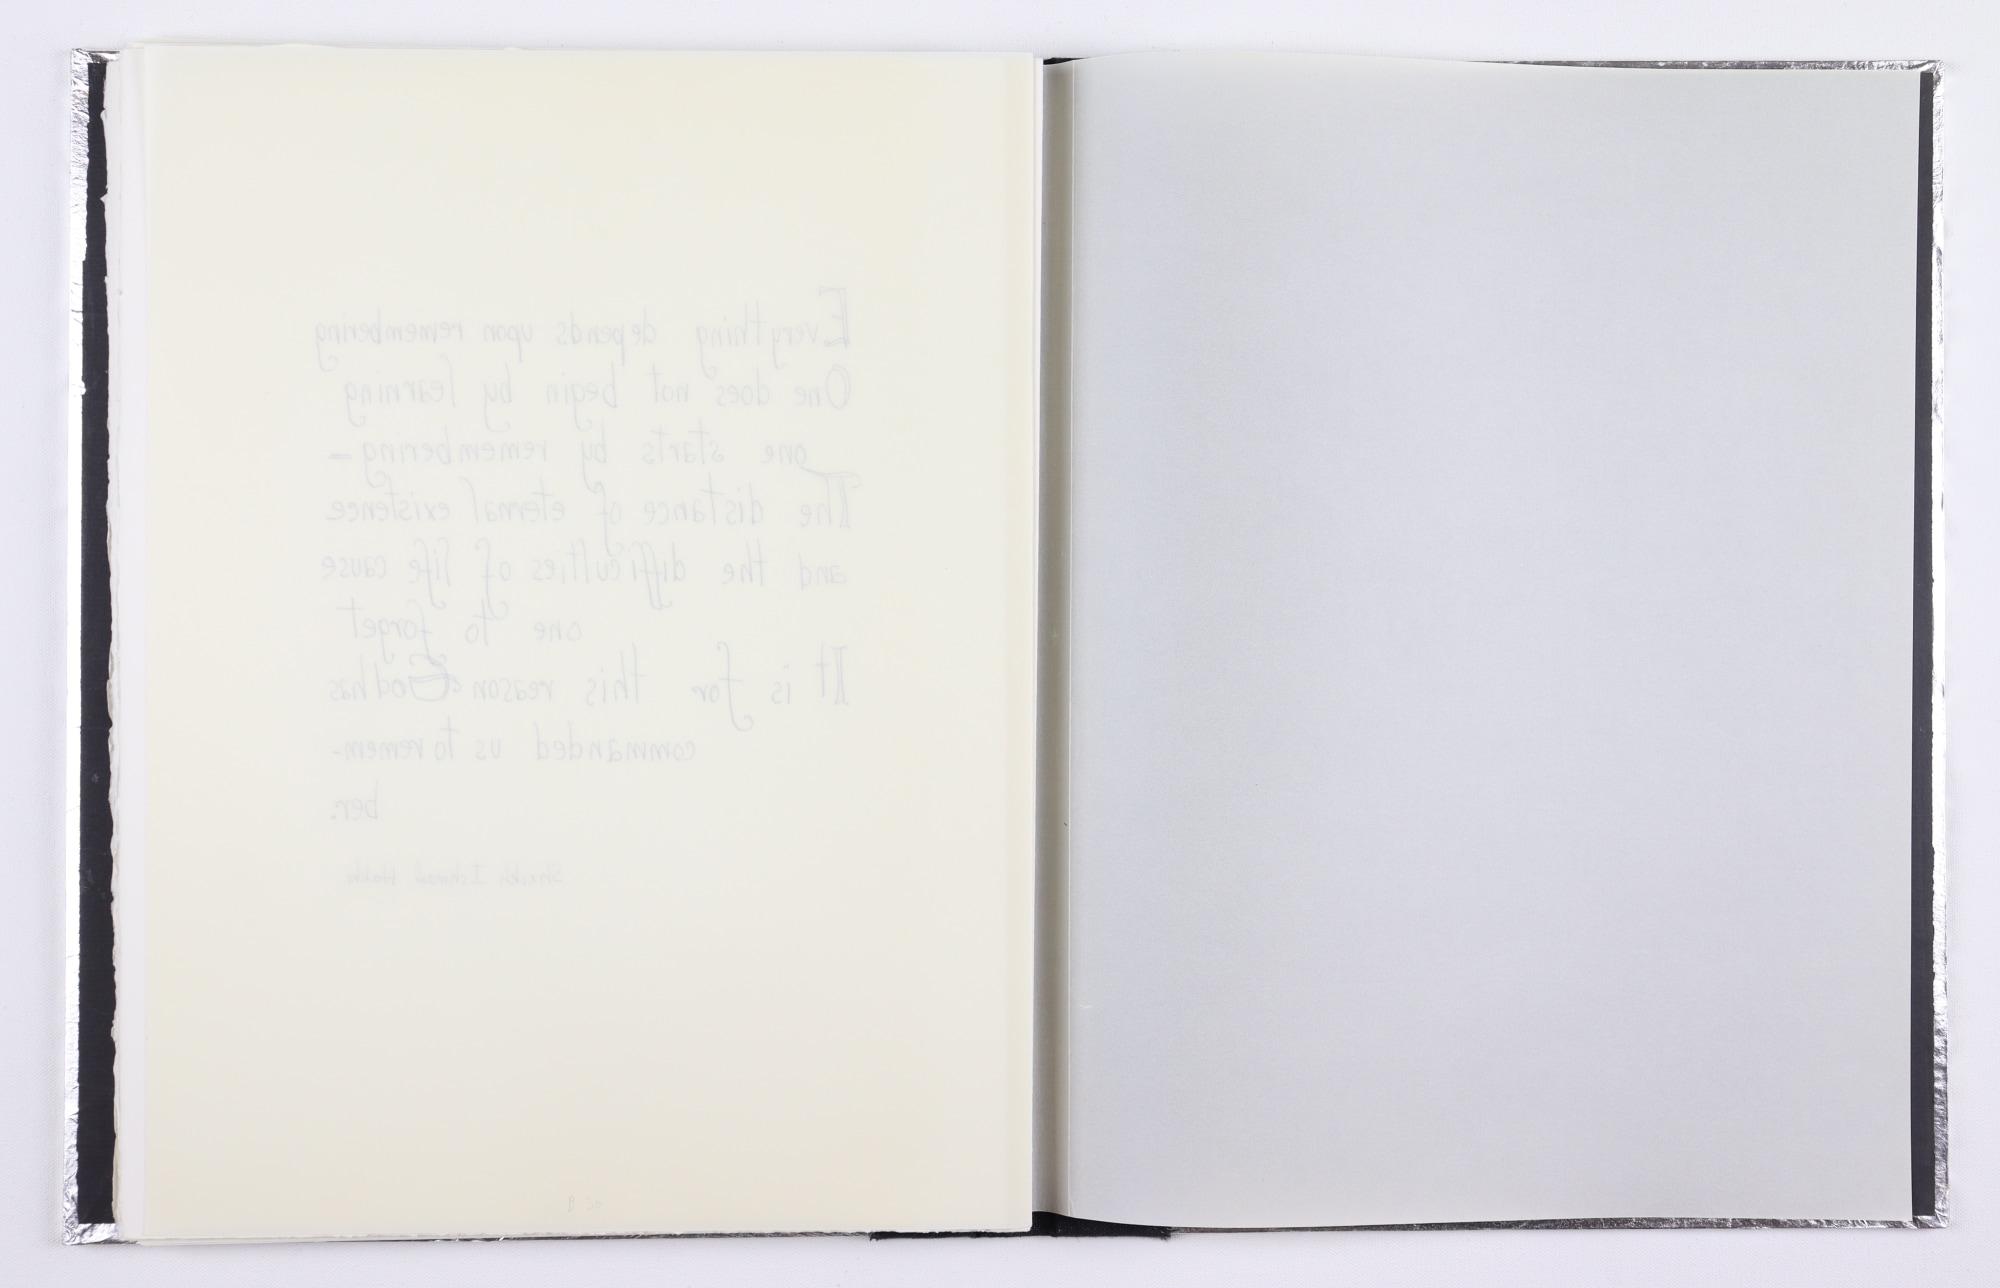 Everything depends upon remembering
One does not begin by learning
one starts by remembering –
The distance of eternal existence
and the difficulties of life cause
one to forget
It is for this reason God has
commanded us to remem-
ber.
Sheikh